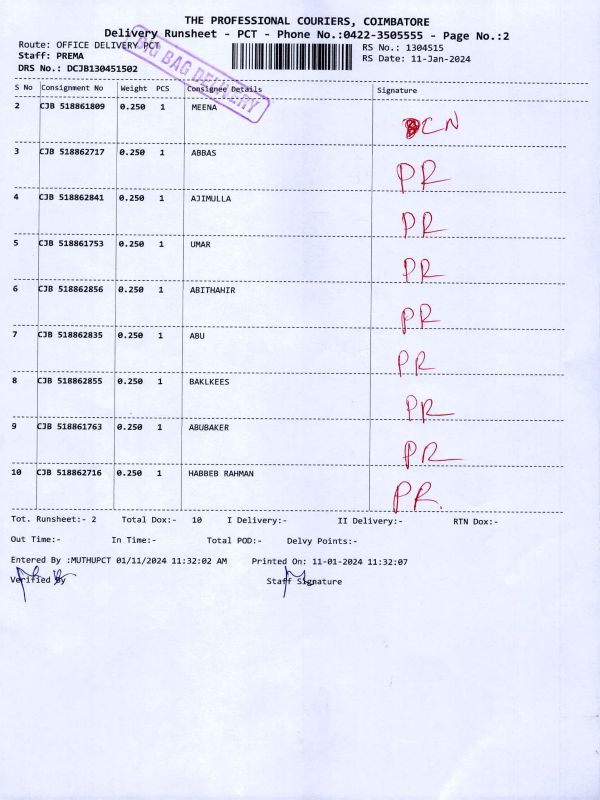 THE PROFESSIONAL COURIERS, COIMBATORE
Delivery Runsheet - PCT - Phone No.:0422-3505555 - Page No.:2
Route: OFFICE DELIVERY PCT
RS No.: 1304515
Staff: PREMA
RS Date: 11-Jan-2024
DRS No.: DCJB130451502
BAG DELIVERY
S No Consignment No Weight PCS Consignee Details Signature
2 CJB 518861809 0.250 1 MEENA CN
3 CJB 518862717 0.250 1 ABBAS PR
4 CJB 518862841 0.250 1 AJIMULLA PR
5 CJB 518861753 0.250 1 UMAR PR
6 CJB 518862856 0.250 1 ABITHAHIR PR
7 CJB 518862835 0.250 1 ABU PR
8 CJB 518862855 0.250 1 BAKLKEES PR
9 CJB 518861763 0.250 1 ABUBAKER PR
10 CJB 518862716 0.250 1 HABBEB RAHMAN PR.
Tot. Runsheet:- 2 Total Dox:- 10 I Delivery:- II Delivery:- RTN Dox:-
Out Time:- In Time:- Total POD:- Delvy Points:-
Entered By :MUTHUPCT 01/11/2024 11:32:02 AM Printed On: 11-01-2024 11:32:07
Verified By Staff Signature